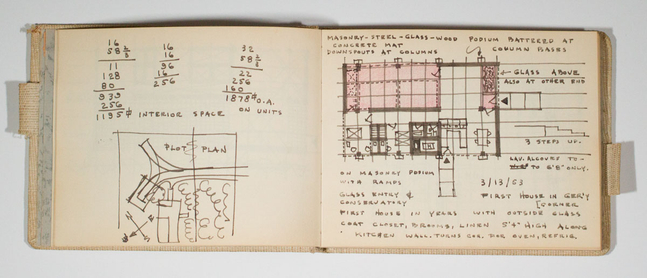 16
58 2/3
11
128
80
939
256
1195 ⌀ INTERIOR SPACE
16
16
96
16
256
32
58 2/3
22
256
160
1878 ⌀ O.A.
ON UNITS
PLOT PLAN
MASONRY-STEEL-GLASS-WOOD PODIUM BATTERED AT
CONCRETE MAT COLUMN BASES
DOWNSPOUTS AT COLUMNS
GLASS ABOVE
ALSO AT OTHER END
3 STEPS UP.
LAV. ALCOVES TO
TO 6'8" ONLY.
ON MASONRY PODIUM
WITH RAMPS
3/13/53
GLASS ENTRY &
CONSERVATORY
FIRST HOUSE IN GER'Y
CORNER
FIRST HOUSE IN YEARS WITH OUTSIDE GLASS
COAT CLOSET, BROOMS, LINEN 5'4" HIGH ALONG
KITCHEN WALL. TURNS COR. FOR OVEN, REFRIG.